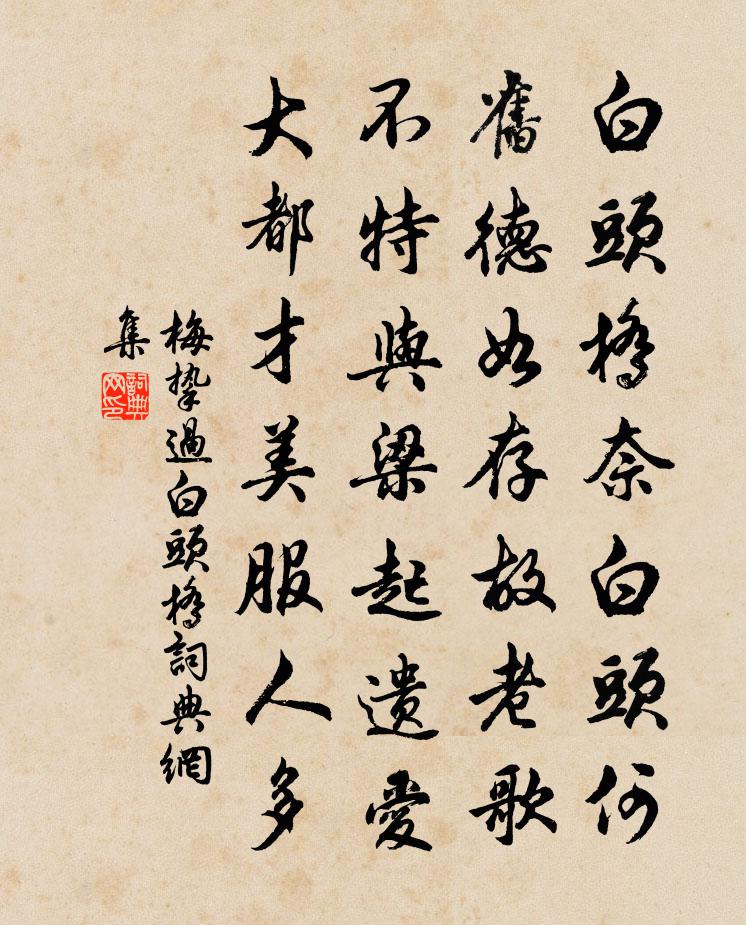 白頭橋奈白頭何
舊德如存故老歌
不特與梁起遺愛
大都才美服人多
梅摯過白頭橋詞典網
集
詞典
网印